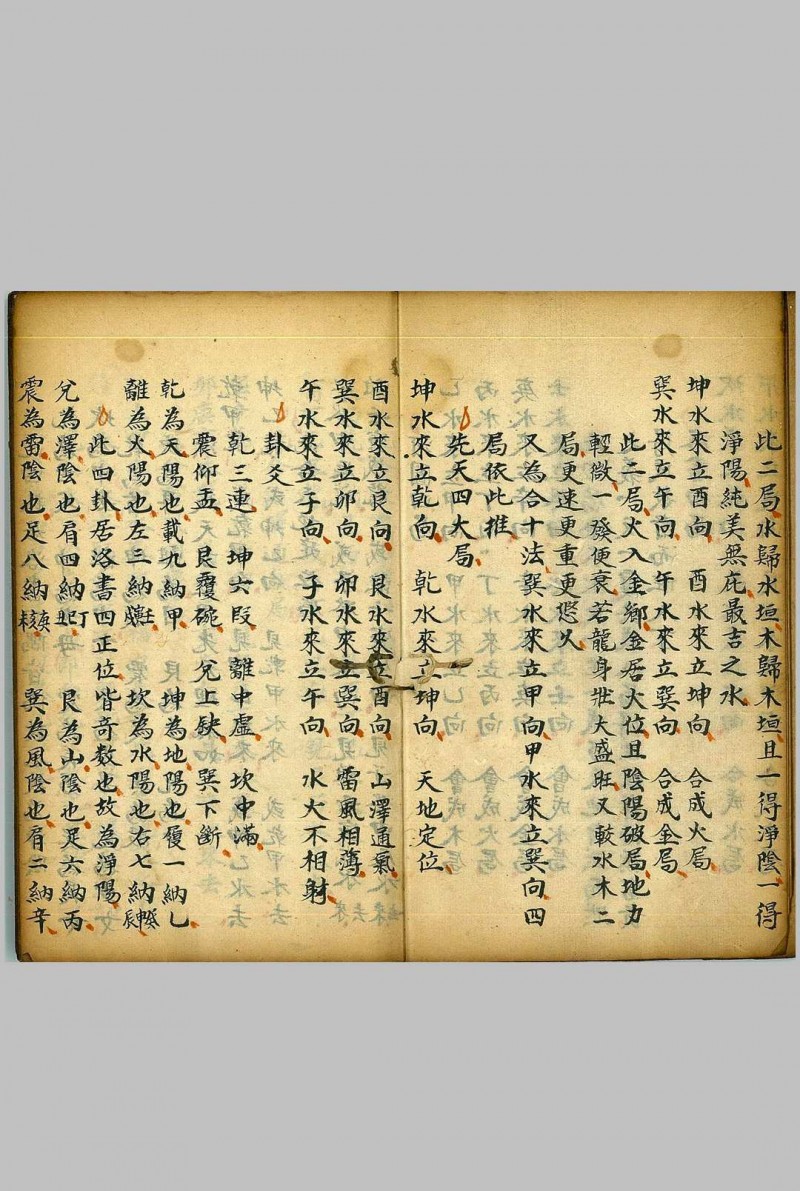 此二局水歸水垣木歸木垣且一得淨陰一得
淨陽純美無庇最吉之水
坤水來立酉向 酉水來立坤向 合成火局
巽水來立午向 午水來立巽向 合成金局
此二局火入金鄉金居火位且陰陽破局地力
輕微一發便衰若龍身壯大盛旺又較水木二
局更速更重更悠久
又為合十法巽水來立甲向甲水來立巽向四
局依此推
先天四大局
坤水來立乾向 乾水來立坤向 天地定位
酉水來立艮向 艮水來立酉向 山澤通氣
巽水來立卯向 卯水來立巽向 雷風相薄
午水來立子向 子水來立午向 水火不相射
卦爻
乾三連 坤六段 離中虛 坎中滿
震仰盂 艮覆碗 兌上缺 巽下斷
乾為天陽也戴九納甲 坤為地陽也履一納乙
離為火陽也左三納壬 坎為水陽也右七納癸申辰
此四卦居洛書四正位皆奇數也故為淨陽
兌為澤陰也肩四納丁 艮為山陰也足六納丙
震為雷陰也足八納庚亥未 巽為風陰也肩二納辛